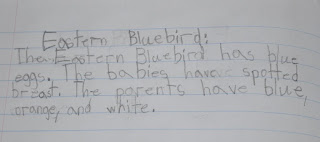 Eastern Bluebird:
The Eastern Bluebird has blue
eggs. The babies have spotted
breast. The parents have blue,
orange, and white.